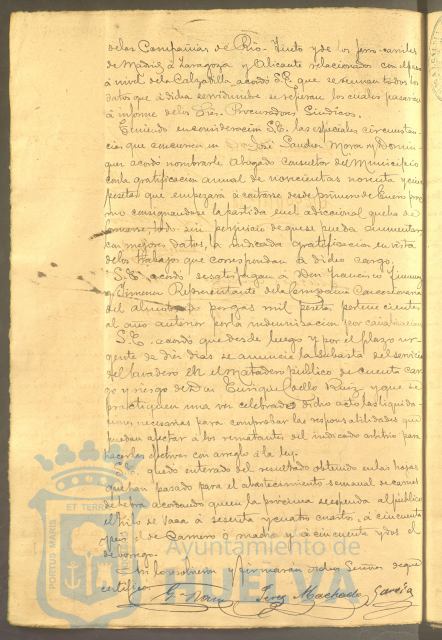 de las Compañias de Rio-Tinto y de los ferro-carriles
de Madrid á Zaragoza y Alicante relacionados con el paso
á nivel de la Calzadilla acordó S.E. que se reunan todos los
datos que á dicha servidumbre se refieran los cuales pasaran
á informe de los Sres. Procuradores Sindicos.
Teniendo en consideracion S.E. las especiales circunstan
cias que concurren en Don José Sanchez Mora y Domin
guez acordó nombrarle Abogado Consultor del Municipio
con la gratificacion anual de novecientas noventa y cinco
pesetas que empezará á contarse desde primero de Enero pro
mo consignandose la partida en el adiccional que ha de
formarse, todo sin perjuicio de que se pueda aumentar
con mejores datos, la indicada gratificacion en vista
de los trabajos que correspondan á dicho cargo.
S.E. acordó se satisfagan á Don Francisco Jimenez
y Jimenez Representante de la Compañia Concesionaria
del alumbrado por gas mil pesetas pertenecientes
al año anterior por la indemnizacion por canalizacion
S.E. acordó que desde luego y por el plazo ur
gente de diez dias se anuncie la subasta del servicio
del lavadero en el Matadero público de cuenta car
go y riesgo de Don Enrique Coello Ruiz y que se
practiquen una vez celebrado dicho acto las liquida
ciones necesarias para comprobar las responsabilidades que
puedan afectar á los rematantes del indicado arbitrio para
hacerlas efectivas con arreglo á la ley.
S.E. quedó enterado del resultado obtenido en las hojas
que han pasado para el abastecimiento semanal de carnes
de hebra acordando que en la proxima se expenda al público
el kilo de vaca á sesenta y cuatro cuartos, á cincuenta
y seis el de Carnero y macho y á cincuenta y dos el
de borrego.
Así lo acordaron y firmaron dichos Señores de que
certifico.
Perez Machado Garcia
PORTUS MARIS ET TERRAE
Ayuntamiento de
HUELVA